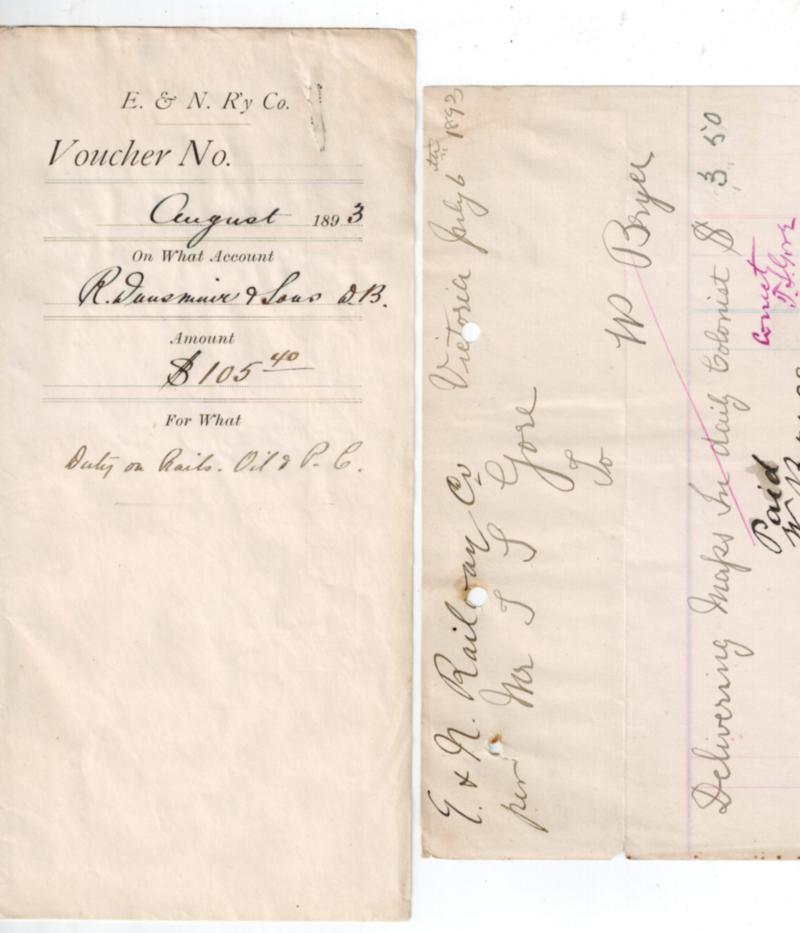 E. & N. R'y Co.
Voucher No.
August 1893
On What Account
R. Dunsmuir & Sons D.B.
Amount
$105 40
For What
Duty on Rails. Oil & P. C.
Victoria July 6th 1892
E. & N. Railway Co
per Mr T S Gore
To
W Bryer
Delivering Maps In daily Colonist $ 3.50
Correct
T.S. Gore
Paid